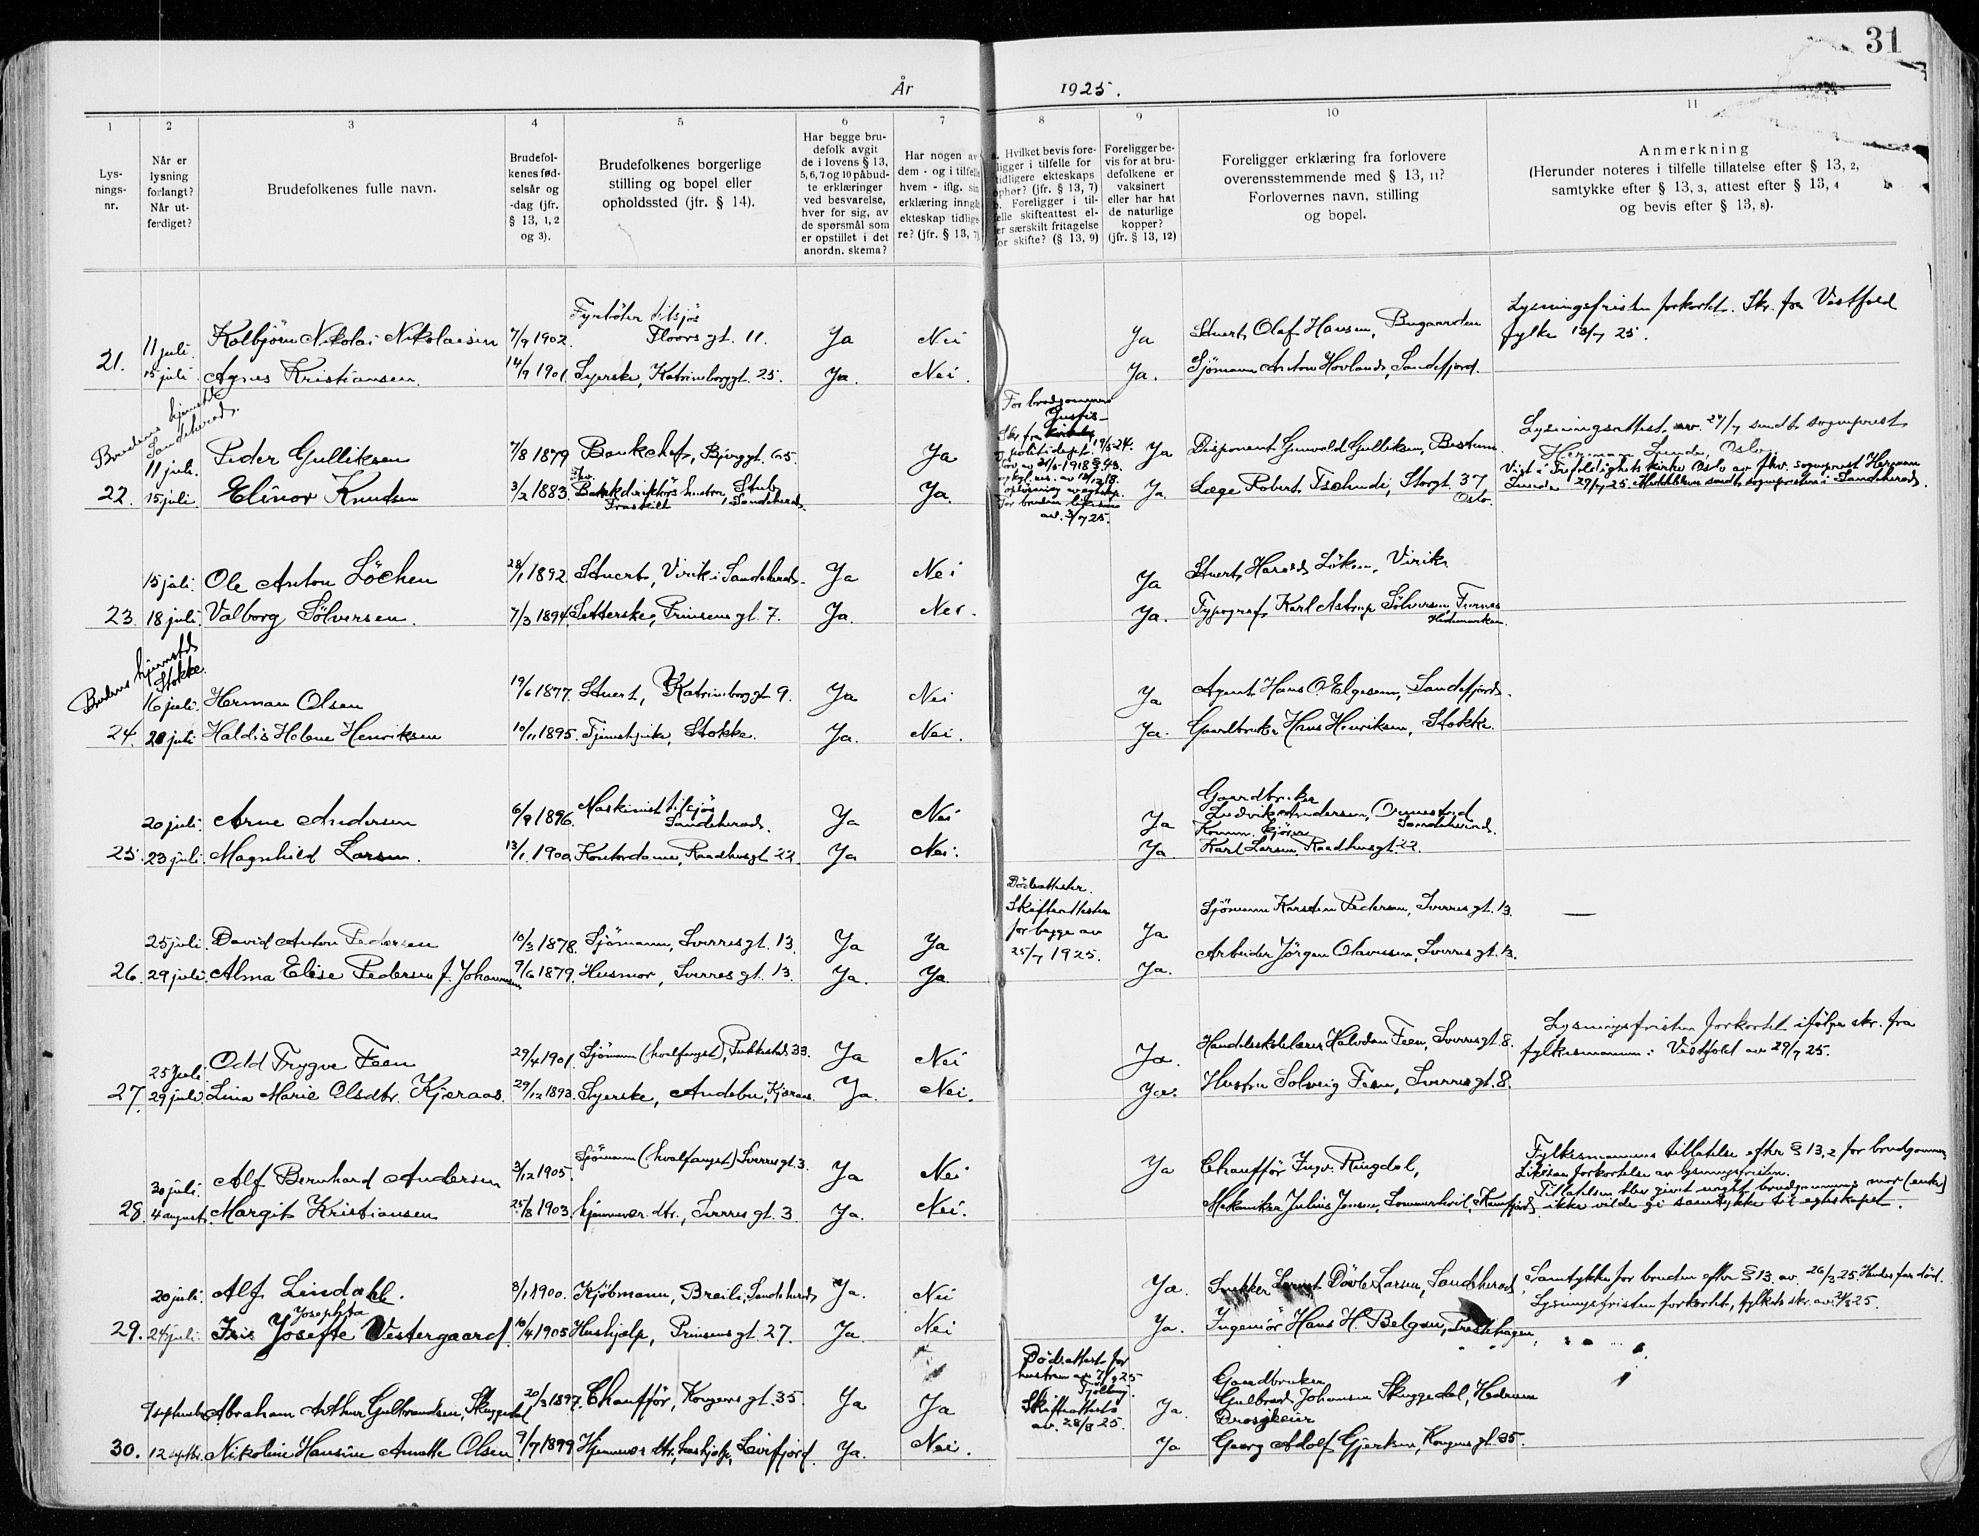 31
År 1925.
1 2 3 4 5 6 7 8 9 10 11
Lys-
nings-
nr.
Når er
lysning
forlangt?
Når ut-
ferdiget?
Brudefolkenes fulle navn.
Brudefol-
kenes fød-
selsår og
-dag (jfr.
§ 13, 1, 2
og 3).
Brudefolkenes borgerlige
stilling og bopel eller
opholdssted (jfr. § 14).
Har begge bru-
defolk avgit
de i lovens § 13,
5, 6, 7 og 10 påbud-
te erklæringer
ved besvarelse,
hver for sig, av
de spørsmål som
er opstillet i det
anordn. skema?
Har nogen av
dem - og i tilfelle
hvem - iflg. sin
erklæring inngått
ekteskap tidlige-
re? (jfr. § 13, 7)
Hvilket bevis fore-
ligger i tilfelle for
tidligere ekteskaps
ophør? (jfr. § 13, 7)
b. Foreligger i til-
felle skifteattest el-
er særskilt fritagelse
for skifte? (§ 13, 9)
Foreligger be-
vis for at bru-
defolkene er
vaksinert
eller har hat
de naturlige
kopper?
(jfr. § 13, 12)
Foreligger erklæring fra forlovere
overensstemmende med § 13, 11?
Forlovernes navn, stilling
og bopel.
Anmerkning
(Herunder noteres i tilfelle tillatelse efter § 13, 2,
samtykke efter § 13, 3, attest efter § 13, 4
og bevis efter § 13, 8).
Fyrbøter tilsjøs
11 juli. Kolbjörn Nikolai Nikolaisen 7/9 1902. Floors gt. 11. Ja Nei Ja Stuert Olaf Hansen, Bugaarden
Lysningsfristen forkortet. Skr. fra Vestfold
fylke 13/7 25.
21. 15 juli Agnes Kristiansen. 14/9 1901. Syerske, Katrineborggt. 25. Ja. Nei. Ja. Sjömann Anton Hovland, Sandefjord.
Brudens hjemsted
Sandeherad.
11 juli. Peder Gulliksen 7/8 1879 Bankchef, Bjerggt. 65. Ja Ja Disponent Gunvald Gulliksen, Bestum
For brudgommen
Justis-
19/5 24.
Lysningsattest av 24/7 sendt sogneprest
Herman Lunde, Oslo.
22. 15 juli. Elinor Knudsen 3/2 1883. Bankdirektörs hustru, Stub, Sandeherad. Ja. Ja. Læge Robert Tschudi, Storgt. 37
Fraskilt
Oslo.
Viet i Trefoldighets kirke Oslo av fhv. sogneprest Herman
Lunde 29/7 25. sendt sognepresten i Sandeherad.
av. 3/7 25.
15 juli. Ole Anton Löchen 28/1 1892. Stuert, Virik i Sandeherad. Ja Nei Ja Stuert Harald Löken, Virik
23. 18 juli. Valborg Sölversen. 7/3 1894. Setterske, Prinsens gt. 7. Ja. Nei. Ja. Typograf Karl Astrup Sölversen, Furnes
Hedemarken.
Brudens hjemsted
Stokke.
16 juli. Herman Olsen 19/6 1877. Stuert, Katrineborggt 9. Ja Nei Ja Agent Hans O. Elgesem, Sandefjord.
24. 20 juli Haldis Helene Henriksen 10/11 1895. Tjenestepike, Stokke. Ja. Nei. Ja. Gaardbruker Hans Henriksen, Stokke.
20 juli. Arne Andersen 6/9 1896. Maskinist tilsjøs Ja Nei Ja Gaardbruker
Sandeherad.
Ludvik Andersen, Ormestad
Sandeherad.
25. 23 juli. Magnhild Larsen. 13/1 1900. Kontordame, Raadhusgt 22. Ja Nei. Ja. Karl Larsen Raadhusgt. 22.
Dödsattester.
Skifteattester
for begge av
25/7 1925.
25 juli. David Anton Pedersen 10/3 1878. Sjömann, Sverres gt. 13. Ja Ja Ja Sjömann Karsten Pedersen, Sverres gt. 13.
26. 29 juli. Alma Elise Pedersen f. Johannesen 9/6 1879. Husmor, Sverres gt. 13. Ja. Ja. Ja. Arbeider Jörgen Olavesen, Sverres gt. 13.
25 Juli. Odd Trygve Feen 29/4 1901. Sjömann (hvalfangst), Pukkestad 33. Ja Nei Ja. Handelsskolelærer Halvdan Feen, Sverres gt. 8.
Lysningsfristen forkortet ifölge skr. fra
fylkesmannen i Vestfold av 29/7 25.
27. 29 juli. Lina Marie Olsdtr. Kjæraas. 29/12 1893. Syerske, Andebu, Kjæraas. Ja. Nei. Ja. Hustru Solveig Feen, Sverres gt. 8.
30 juli. Alf Bernhard Andersen 3/12 1905. Sjömann (hvalfangst) Sverres gt. 3. Ja Nei Ja Chauffør Ingv. Ringdal,
Fylkesmannens tillatelse efter § 13, 2 for brudgommen.
Likesaa forkortelse av lysningsfristen.
Tillatelsen blev givet uagtet brudgommens mor (enke)
28. 4 august. Margit Kristiansen 25/8 1903. hjemmev. dtr., Sverres gt. 3. Ja. Nei. Mekaniker Julius Jensen, Sommerhvil, ikke vilde gi samtykke til egteskapet.
20 juli. Alf Lindahl. 3/1 1900. Kjöbmann, Breili, Sandeherad. Ja. Nei Ja. Dövle Larsen, Sandeherad.
Samtykke for bruden efter § 13. av. 26/3 25. Hendes far död.
Lysningsfristen forkortet, fylkets skr. av.
Josephta
29. 24 juli. Iris Josefte Vestergaard. 10/4 1905 Hushjælp, Prinsens gt. 27. Ja. Nei Ja. Ingeniör Hans H. Belgau, Prestehagen.
Dödsattest for
hustruen av 7/9 25
Tjølling.
Skifteattest
av. 28/8 25.
9 september Abraham Arthur Gulbrandsen, Skuggedal 20/3 1897. Chauffør, Kongens gt. 35. Ja Ja Ja. Gaardbruker
Gulbrand Johansen Skuggedal, Hedrum
Drosjeeier
30. 12 septbr. Nikoline Hansine Annette Olsen 9/7 1899 Hjemmev. dtr., hushjelp, Ja. Nei. Ja Georg Adolf Gjertsen, Kongens gt. 35.